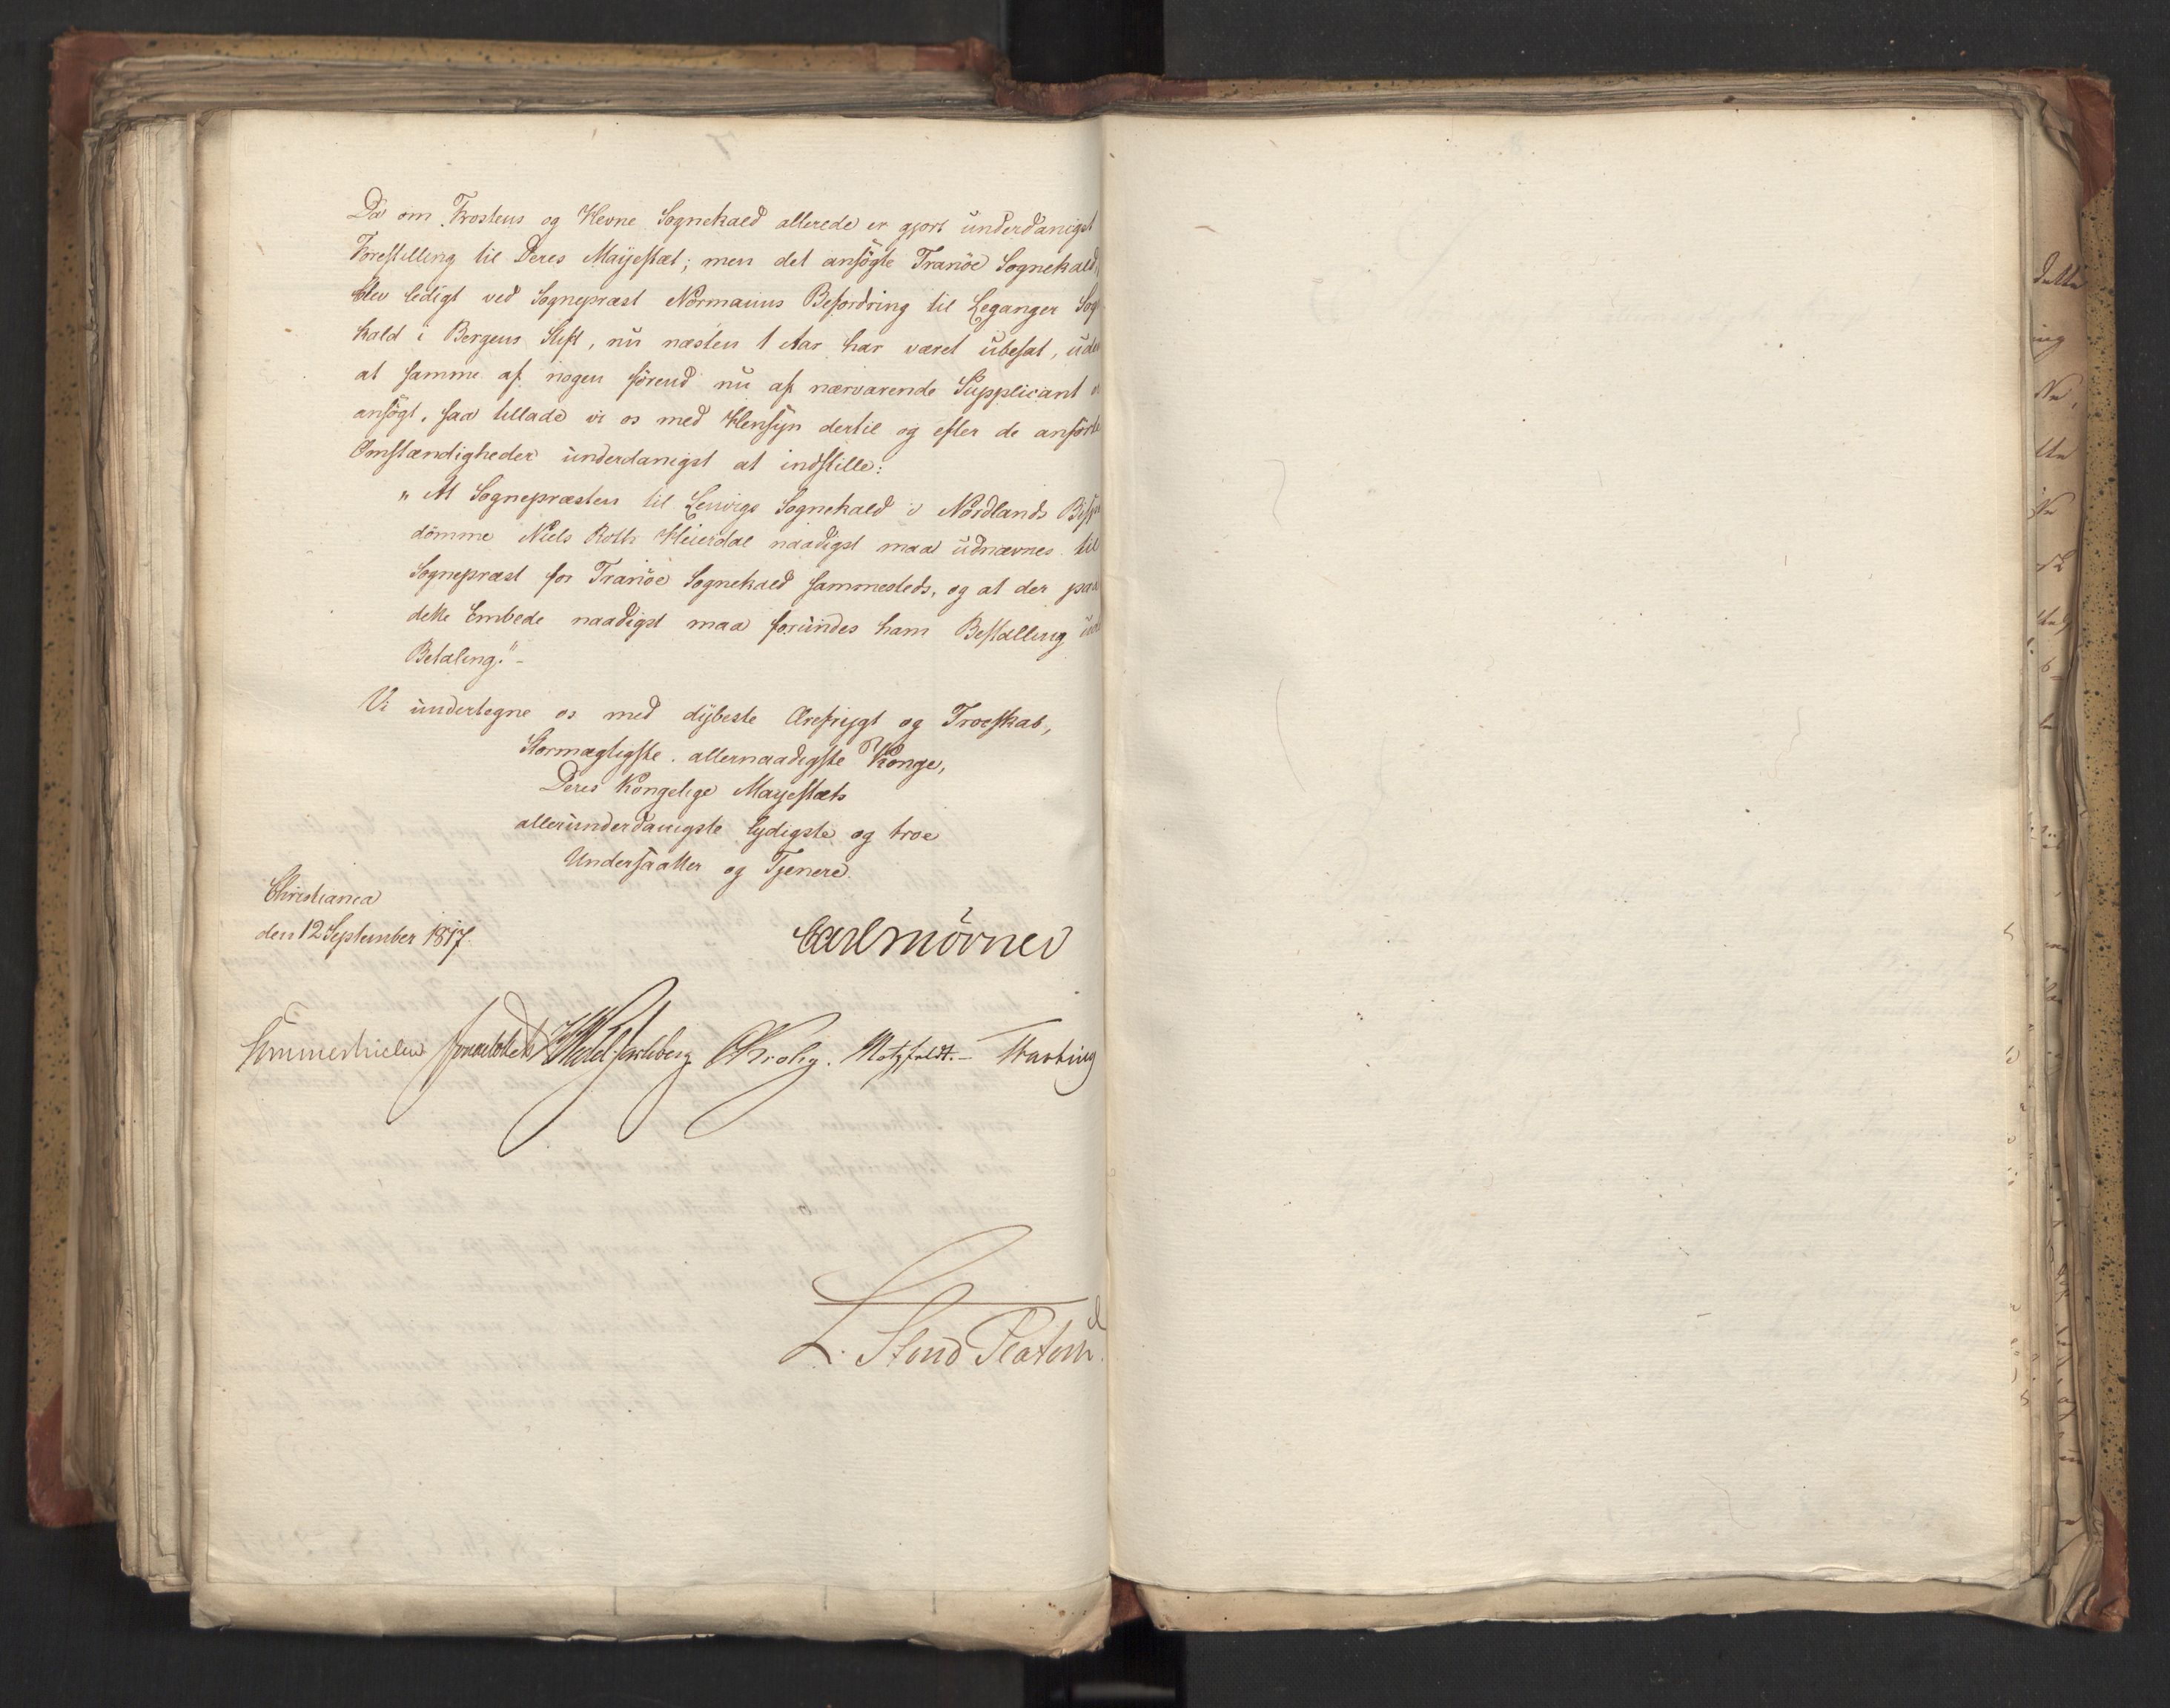 Da om Frostens og Hevne Sognekald allerede er gjort underdanigst
Forestilling til Deres Mayestæt; men det ansögte Tranöe Sognekald,
blev ledigt ved Sognepræst Normanns Befordring til Leganger Sog
kald i Bergens Stift, nu næsten 1 Aar har været ubesat, uden
at samme af nogen förend nu af nærværende Supplicant er
ansögt, saa tillade vi os med Hensyn dertil og efter de anförte
Omstændigheder underdanigst at indstille:
"At Sognepræsten til Lenvigs Sognekald i Nordlands Bispe
dömme Niels Roth Heierdal naadigst maa udnævnes til
Sognepræst for Tranöe Sognekald sammesteds, og at der paa
dette Embede naadigst maa forundes ham Bestalling uden
Betaling."-
Vi undertegne os med dÿbeste Ærefrygt og Troeskab,
Stormægtigste, allernaadigste Konge,
Deres Kongelige Mayestæts
allerunderdanigste lydigste og troe
Undersaatter og Tjenere.
Christiania
den 12 September 1817.
Carl Mörner
Sommerhielm Wedel Jarlsberg Krohg. Motzfeldt.- Haxthausen
L. Stoud Platou